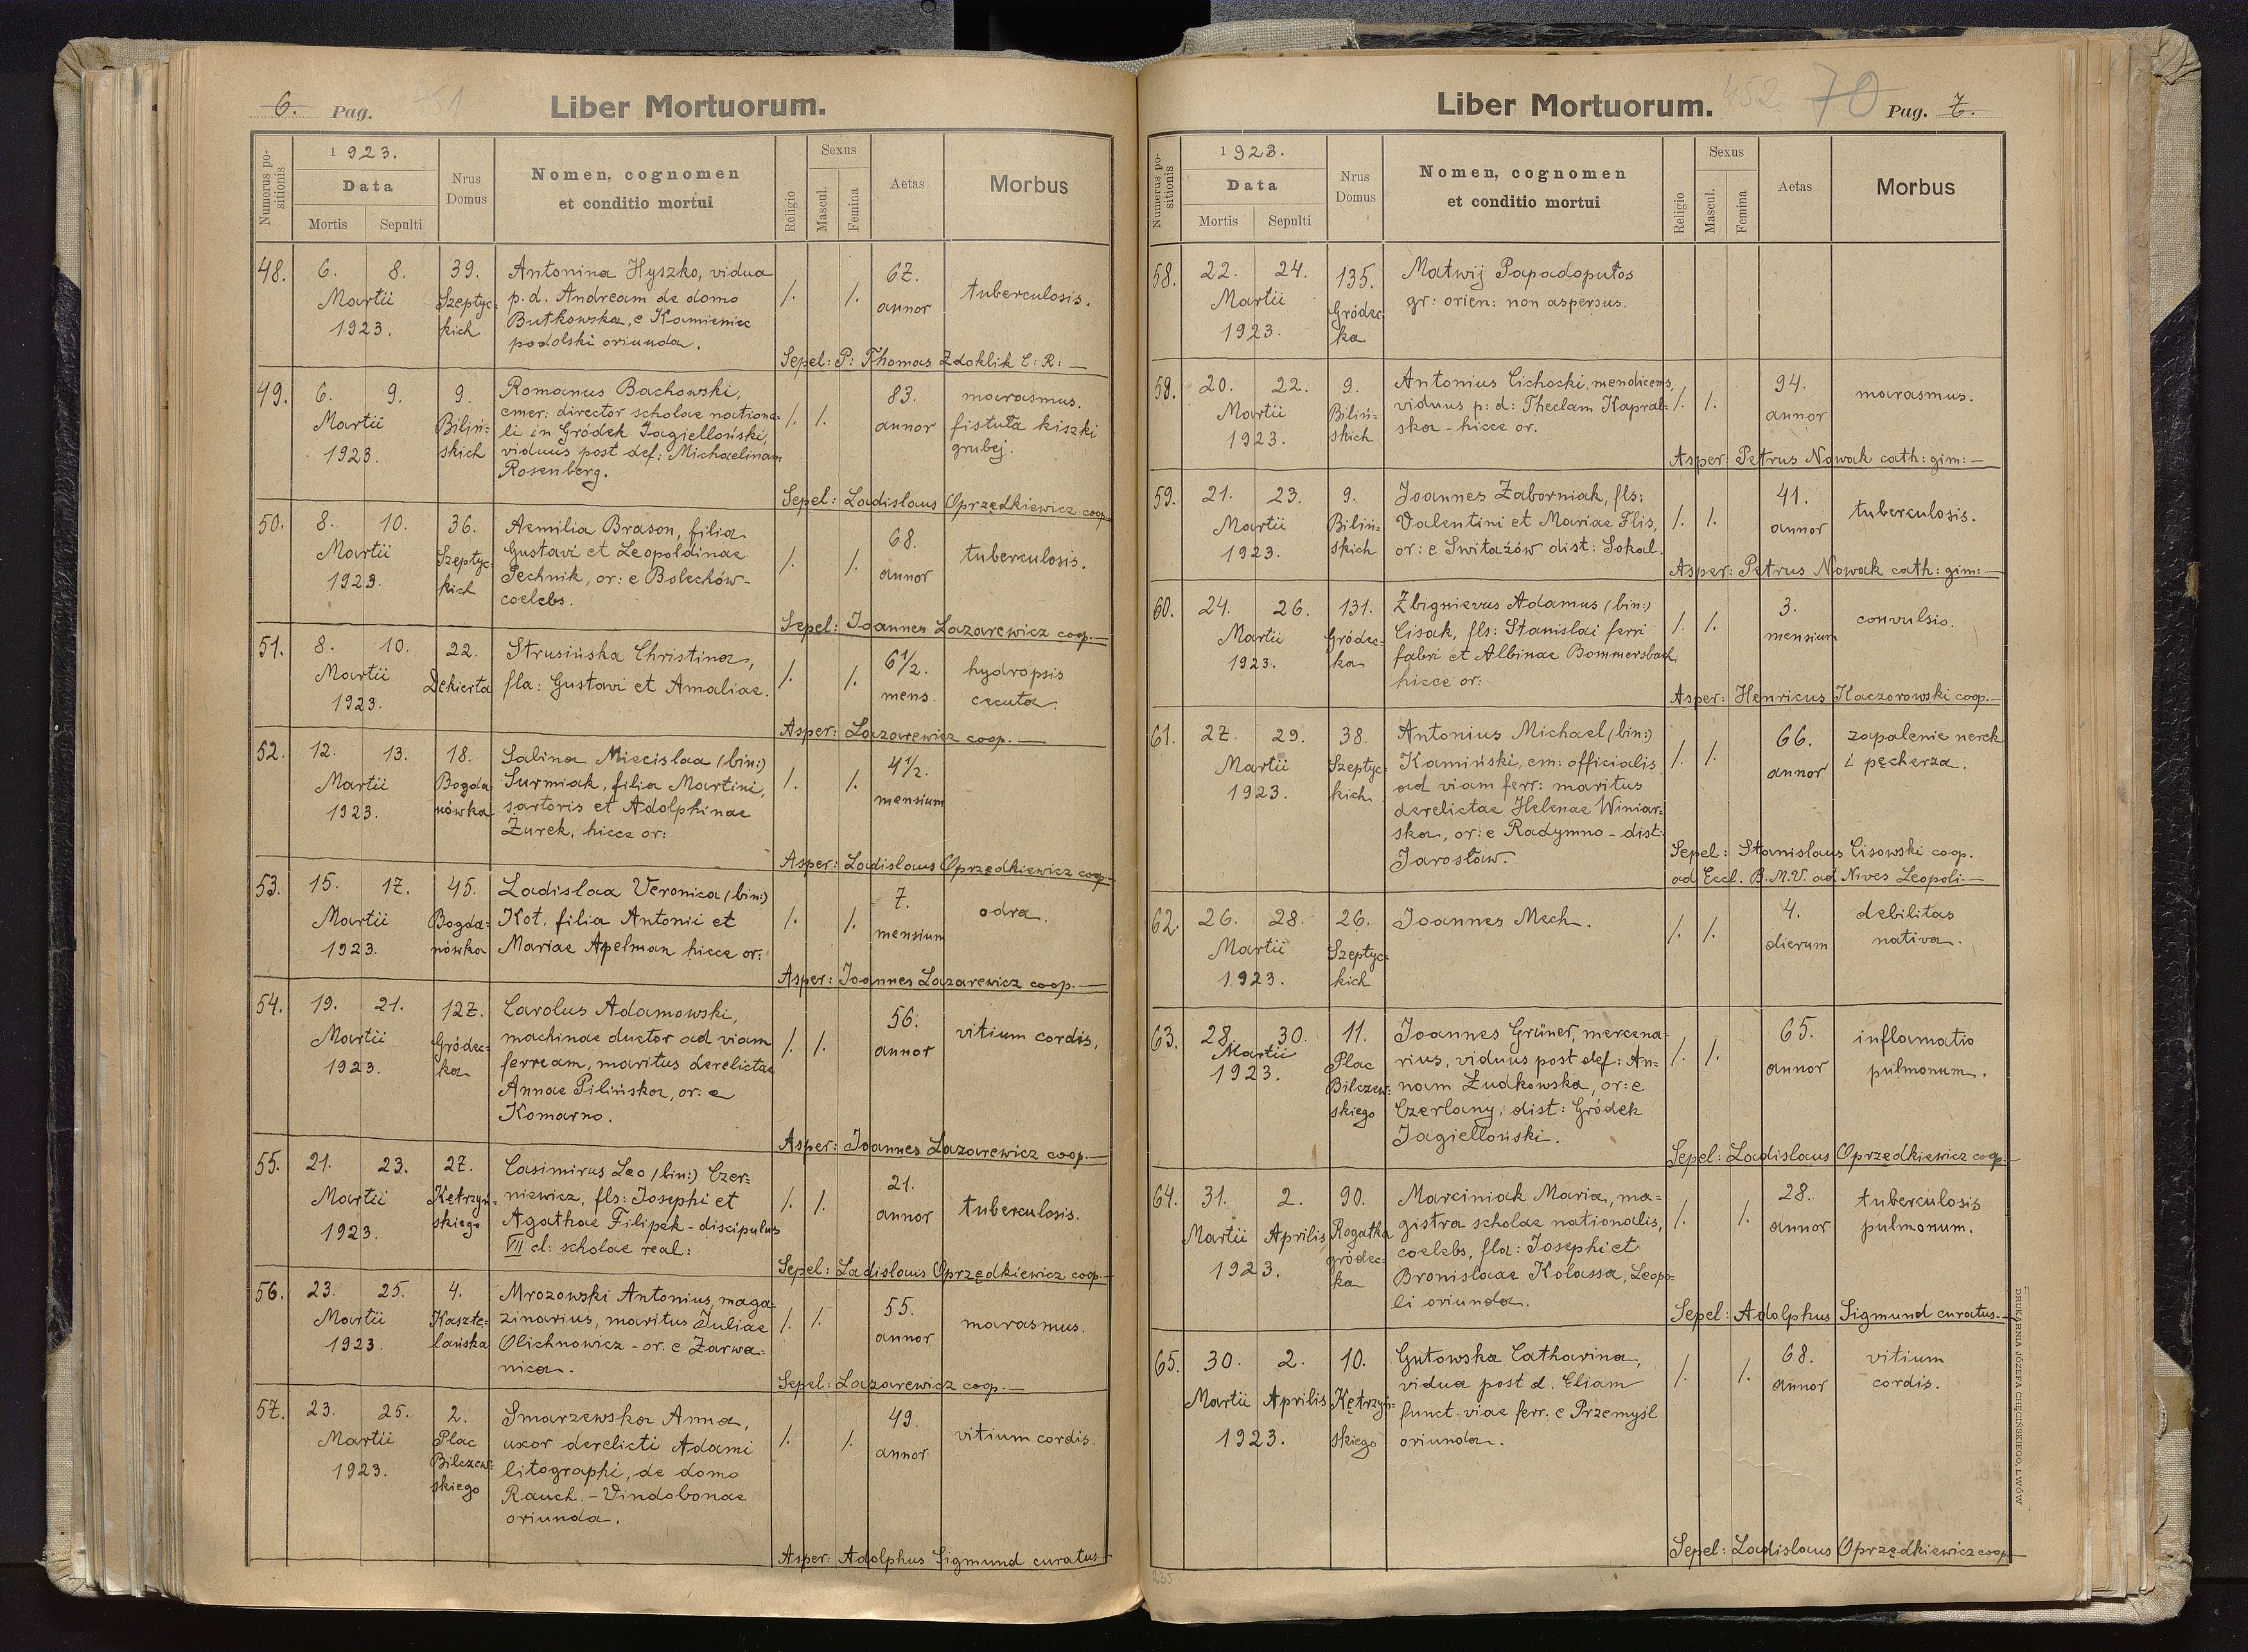 6. Pag. 451
Liber Mortuorum.
Numerus positionis
1923.
Data
Mortis Sepulti
Nrus Domus
Nomen, cognomen
et conditio mortui
Religio
Sexus
Mascul. Femina
Aetas
Morbus
48. 6. 8. Martii 1923. 39. Szeptyc-
kich
Antonina Hyszko, vidua
p. d. Andream de domo
Butkowska, e Kamieniec
podolski oriunda.
/. /. 67. annor tuberculosis.
Sepel: P: Thomas Zdoklik C: R: —
49. 6. 9. Martii 1923. 9. Biliń-
skich
Romanus Bachowski,
emer: director scholae nationa-
li in Gródek Jagielloński,
viduus post def: Michaelinam
Rosenberg.
/. /. 83. annor marasmus.
fistuła kiszki
grubej.
Sepel: Ladislaus Oprzędkiewicz coop.
50. 8. 10. Martii 1923. 36. Szeptyc-
kich
Aemilia Brason, filia
Gustavi et Leopoldinae
Pechnik, or: e Bolechów-
coelebs.
/. /. 68. annor tuberculosis.
Sepel: Joannes Lazarewicz coop.—
51. 8. 10. Martii 1923. 22. Dekierta
Strusińska Christina,
fla: Gustavi et Amaliae.
/. /. 6½. mens. hydropsis
cecuta.
Asper: Lazarewicz coop. —
52. 12. 13. Martii 1923. 18. Bogda-
nówka
Salina Miecislaa (bin:)
Surmiak, filia Martini,
sartoris et Adolphinae
Żurek, hicce or:
/. /. 4½. mensium
Asper: Ladislaus Oprzędkiewicz coop—
53. 15. 17. Martii 1923. 45. Bogda-
nówka
Ladislaa Veronica (bin:)
Kot, filia Antonii et
Mariae Apelman hicce or:
/. /. 7. mensium odra.
Asper: Joannes Lazarewicz coop. —
54. 19. 21. Martii 1923. 127. Gródec-
ka
Carolus Adamowski,
machinae ductor ad viam
ferream, maritus derelictae
Annae Pilińska, or: e
Komarno.
/. /. 56. annor vitium cordis.
Asper: Joannes Lazarewicz coop.—
55. 21. 23. Martii 1923. 27. Kętrzyń-
skiego
Casimirus Leo (bin:) Czer-
niewicz, fls: Josephi et
Agathae Filipek - discipulus
VII cl: scholae real:
/. /. 21. annor tuberculosis.
Sepel: Ladislaus Oprzędkiewicz coop.—
56. 23. 25. Martii 1923. 4. Kaszte-
lańska
Mrozowski Antonius, maga-
zinarius, maritus Juliae
Olichnowicz - or. e Zarwa-
nica.
/. /. 55. annor marasmus.
Sepel: Lazarewicz coop. —
57. 23. 25. Martii 1923. 2. Plac
Bilczew-
skiego
Smarzewska Anna,
uxor derelicti Adami
litographi, de domo
Rauch. - Vindobonae
oriunda.
/. /. 49. annor vitium cordis.
Asper: Adolphus Sigmund curatus—
Liber Mortuorum.
452 70 Pag. 7.
Numerus positionis
1923.
Data
Mortis Sepulti
Nrus Domus
Nomen, cognomen
et conditio mortui
Religio
Sexus
Mascul. Femina
Aetas
Morbus
58. 22. 24. Martii 1923. 135. Gródec-
ka
Matwij Papadopułos
gr: orien: non aspersus.
58. 20. 22. Martii 1923. 9. Biliń-
skich
Antonius Cichocki, mendicens,
viduus p: d: Theclam Kapral-
ska - hicce or.
/. /. 94. annor marasmus.
Asper: Petrus Nowak cath: gim: —
59. 21. 23. Martii 1923. 9. Biliń-
skich
Joannes Zaborniak, fls:
Valentini et Mariae Flis,
or: e Switażów dist: Sokal.
/. /. 41. annor tuberculosis.
Asper: Petrus Nowak cath: gim: —
60. 24. 26. Martii 1923. 131. Gródec-
ka
Zbignievus Adamus (bin:)
Cisak, fls: Stanislai ferri
fabri et Albinae Bommersbach,
hicce or:
/. /. 3. mensium convulsio.
Asper: Henricus Kaczorowski coop.—
61. 27. 29. Martii 1923. 38. Szeptyc-
kich
Antonius Michael (bin:)
Kamiński, em: officialis
ad viam ferr: maritus
derelictae Helenae Winiar-
ska, or: e Radymno - dist:
Jarosław.
/. /. 66. annor zapalenie nerek
i pęcherza.
Sepel: Stanislaus Cisowski coop.
ad Eccl. B. M. V. ad Nives Leopoli—
62. 26. 28. Martii 1923. 26. Szeptyc-
kich
Joannes Mech.
/. /. 4. dierum debilitas
nativa.
63. 28. 30. Martii 1923. 11. Plac
Bilczew-
skiego
Joannes Grüner, mercena-
rius, viduus post def: An-
nam Żudkowska, or: e
Czerlany, dist: Gródek
Jagielloński.
/. /. 65. annor inflamatio
pulmonum.
Sepel: Ladislaus Oprzędkiewicz coop.—
64. 31. Martii 2. Aprilis 1923. 90. Rogatka
gródec-
ka
Marciniak Maria, ma-
gistra scholae nationalis,
coelebs, fla: Josephi et
Bronislaae Kolassa, Leopo-
li oriunda.
/. /. 28. annor tuberculosis
pulmonum.
Sepel: Adolphus Sigmund curatus.—
65. 30. Martii 2. Aprilis 1923. 10. Kętrzyń-
skiego
Gutowska Catharina,
vidua post d. Eliam
funct. viae ferr. e Przemyśl
oriunda.
/. /. 68. annor vitium
cordis.
Sepel: Ladislaus Oprzędkiewicz coop—
DRUKARNIA JÓZEFA CHĘCIŃSKIEGO, LWÓW
235